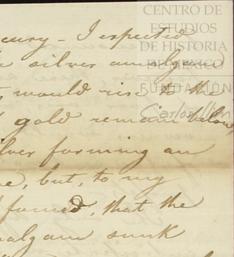 CENTRO DE
ESTUDIOS
DE HISTORIA
FUNDACIÓN
Carlos Slim
cury - I expected
silver amalgam
would rise to the
gold remain below
lver forming an
e, but, to my
found, that the
malgam sunk